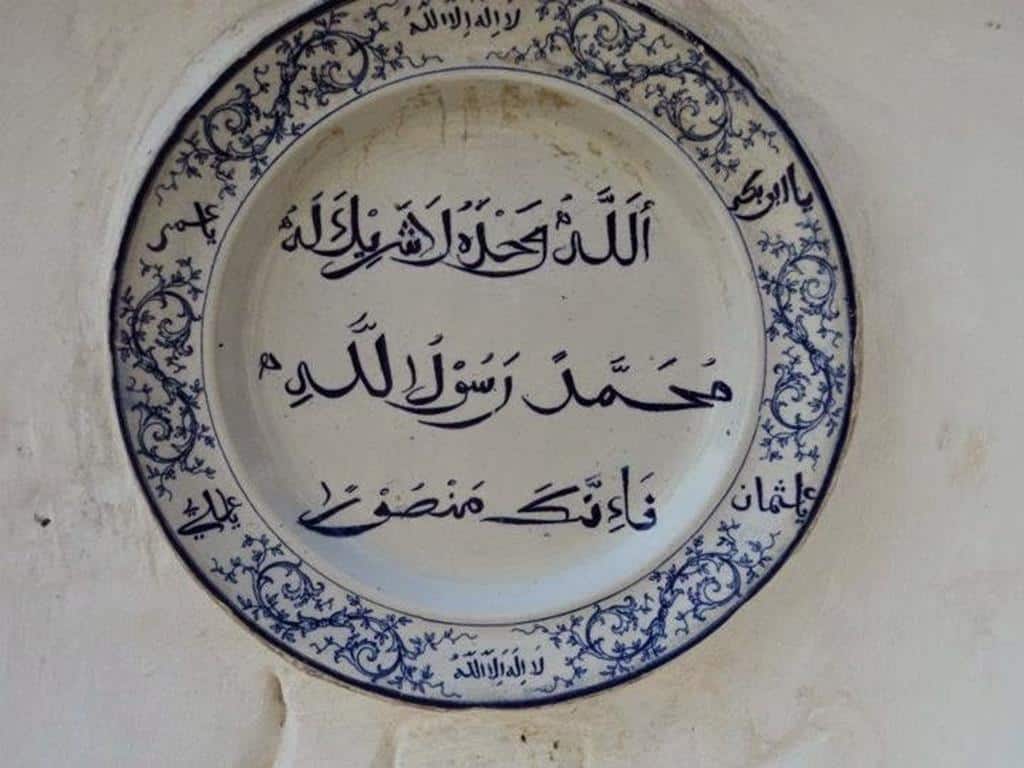 لا اله الا الله
يا ابو بكر
يا عمر
أَللَّهُ وَحْدَهُ لَا شَرِيْكَ لَهُ
مُحَمَّدً رَسُوْلُ اللَّهِ
فَاءِنَّكَ مَنْصُوْرًا
يا عثمان
يا علي
لا اله الا الله